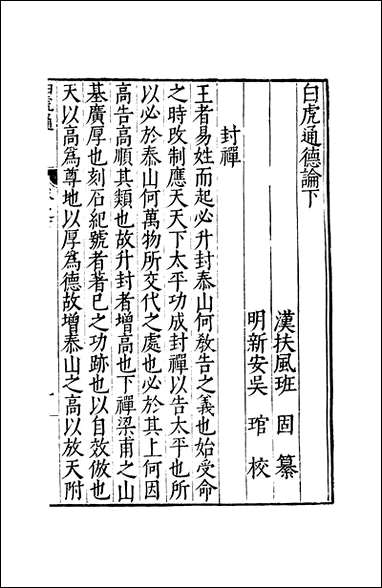 白虎通德論下
漢扶風班 固 纂
明新安吳 琯 校
封禪
王者易姓而起必升封泰山何敎告之義也始受命
之時改制應天天下太平功成封禪以告太平也所
以必於泰山何萬物所交代之處也必於其上何因
高告高順其類也故升封者增高也下禪梁甫之山
基廣厚也刻石紀號者著已之功跡也以自效倣也
天以高爲尊地以厚爲德故增泰山之高以放天附